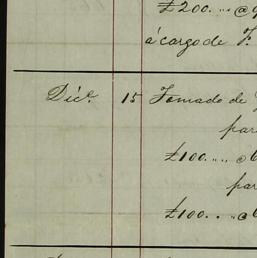 £200. .. @ 9
á cargo de F.
Dic.e 15 Tomado de
par
£100. .. @
par
£100. .. @